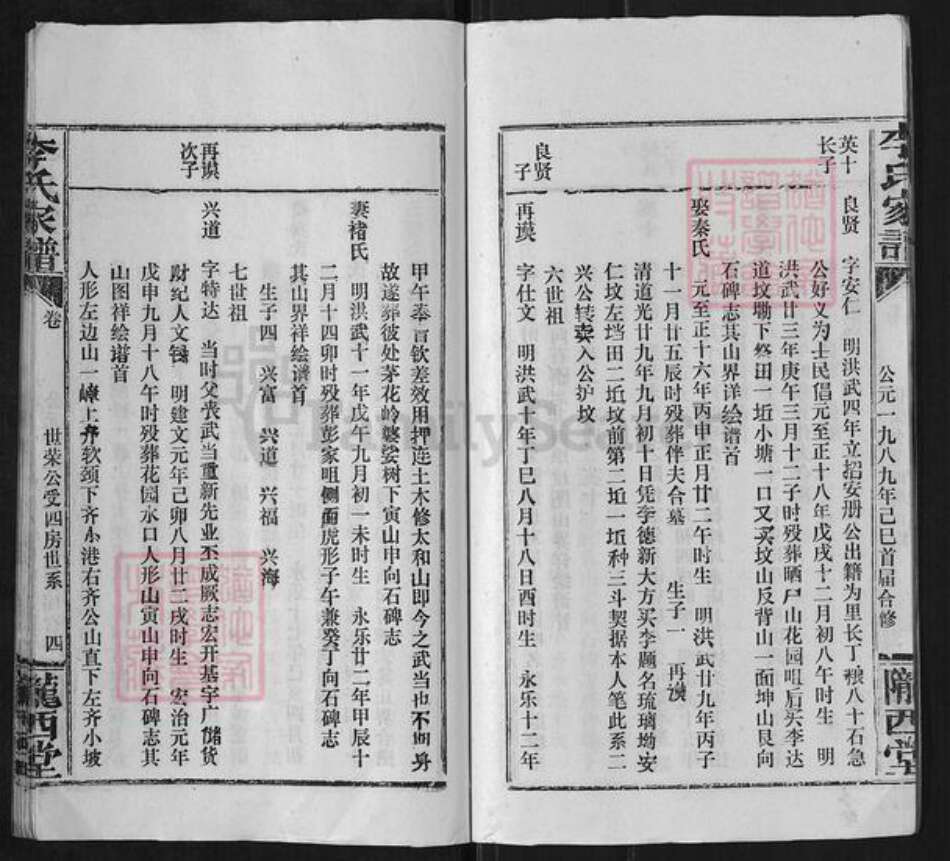 李氏家谱
公元一九八九年己巳首届合修
陇西堂
英十
长子
良贤
字安仁 明洪武四年立招安册公出籍为里长丁粮八十石急
公好义为士民倡元至正十八年戊戌十二月初八午时生 明
洪武廿三年庚午三月十二子时殁葬晒尸山花园咀后买李达
道坟塝下 田一坵小塘一口又买坟山反背山一面坤山艮向
石碑志其山界详绘谱首
娶秦氏
元至正十六年丙申正月廿二午时生 明洪武廿九年丙子
十一月廿五辰时殁葬伴夫合墓 生子一 再谟
清道光廿九年九月初十日凭李德新大方买李题名琉璃坳安
仁坟左垱田二坵坟前第二坵一坵种三斗契据本人笔此系二
兴公转卖入公护坟
六世祖
良贤
子
再谟
字仕文 明洪武十年丁巳八月十八日酉时生 永乐十二年
甲午奉旨钦差效用押连土木修太和山即今之武当也不期身
故遂葬彼处茅花岭婆娑树下寅山申向石碑志
妻褚氏
明洪武十一年戊午九月初一未时生 永乐廿二年甲辰十
二月十四卯时殁葬彭家咀侧面虎形子午兼癸丁向石碑志
其山界祥绘谱首
生子四 兴富 兴道 兴福 兴海
七世祖
再谟
次子
兴道
字特达 当时父丧武当重新先业丕成厥志宏开基宇广储货
财纪人文 明建文元年己卯八月廿二戌时生 宏治元年
戊申九月十八午时殁葬花园水口人形山寅山申向石碑志其
山图祥绘谱首
人形左边山一嶂上齐软颈下齐小港右齐公山直下左齐小坡
李氏家谱
卷
世荣公受四房世系
四
陇西堂